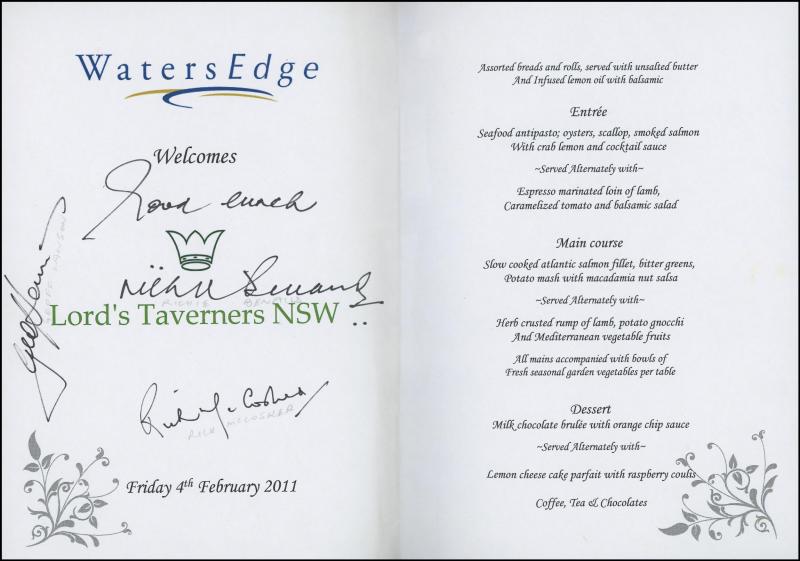 WatersEdge
Welcomes
Good lunch
Richie Benaud
RICHIE BENAUD
Lord's Taverners NSW
Geoff Lawson
GEOFF LAWSON
Rick McCosker
RICK McCOSKER
Friday 4th February 2011
Assorted breads and rolls, served with unsalted butter
And Infused lemon oil with balsamic
Entrée
Seafood antipasto; oysters, scallop, smoked salmon
With crab lemon and cocktail sauce
~Served Alternately with~
Espresso marinated loin of lamb,
Caramelized tomato and balsamic salad
Main course
Slow cooked atlantic salmon fillet, bitter greens,
Potato mash with macadamia nut salsa
~Served Alternately with~
Herb crusted rump of lamb, potato gnocchi
And Mediterranean vegetable fruits
All mains accompanied with bowls of
Fresh seasonal garden vegetables per table
Dessert
Milk chocolate brulée with orange chip sauce
~Served Alternately with~
Lemon cheese cake parfait with raspberry coulis
Coffee, Tea & Chocolates